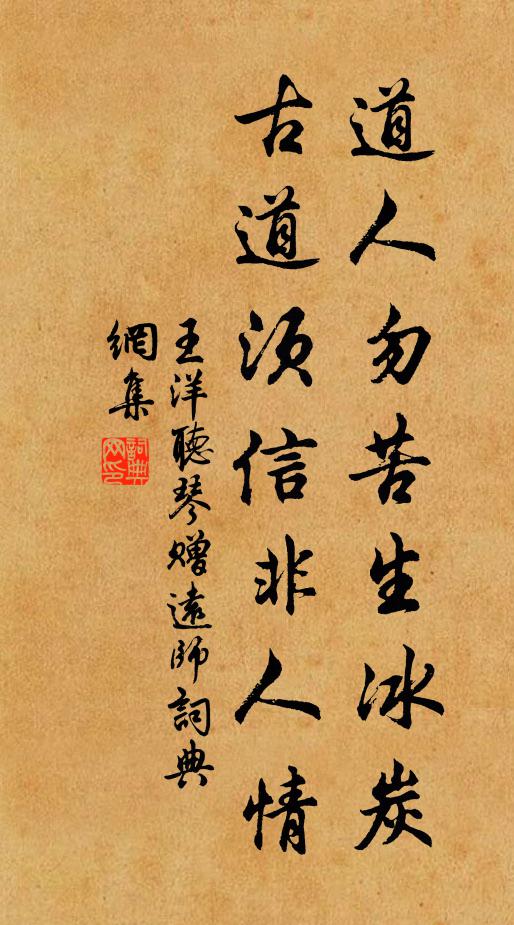 道人勿苦生冰炭
古道須信非人情
王洋聽琴贈遠師詞典
網集
詞典網印